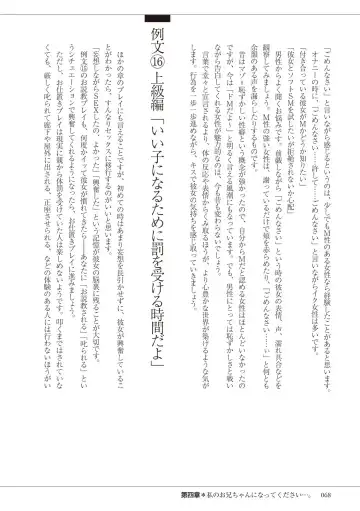 「ごめんなさい」といいながら感じるというのは、少しでもM性のある女性なら経験したことがあると思います。
オナニーの時に、「ごめんなさい……許して……ごめんなさい」と言いながらイク女性は多いです。
「付き合っている彼女がMかどうか知りたい」
「彼女とソフトSMを試したいが拒絶されないか心配」
男性からよく聞くお悩みです。前戯しながら「ごめんなさい」という時の彼女の表情、声、濡れ具合などを
観察してみましょう。M性の強い女性は、謝っているだけで頬を赤らめたり、「ごめんなさい……ぃ」と何とも
余韻のある声を漏らしたりするものです。
昔はマゾ＝恥ずかしい性癖という概念が強かったので、自分からMだと認める女性はほとんどいなかったの
ですが、今は「ドMだよ」と明るく言える風潮にもなっています。でも、男性にとっては恥ずかしさと戦い
ながら告白してくれる女性が魅力的なのは、今も昔も変わらないでしょう。
言葉で堂々と宣言されるより、体の反応や表情からくみ取るほうが、より心豊かな世界が築けるような気が
します。行為を一歩一歩進めながら、キスで彼女の気持ちを感じ取っていきましょう。
例文⑯上級編「いい子になるために罰を受ける時間だよ」
ほかの章のプレイにも言えることですが、初めての時はあまり妄想を長引かせずに、彼女が興奮しているこ
とがわかったら、すんなりセックスに移行するのがいいと思います。
「妄想しながらSEXしたの、よかった」「興奮した」という記憶が彼女の脳裏に残ることが大切です。
例文⑮のお説教プレイを何度か行って彼女が慣れてきて、「あなたに」「お説教される」「叱られる」とい
うシチュエーションで興奮してくれるようになったら、お仕置きプレイに進みましょう。
ただし、お仕置きプレイは現実に親から体罰を受けていた人は楽しめないようです。叩くまではされていな
くても、厳しく叱られて廊下や屋外に出される、正座させられる、などの体験のある人には行わないほうがい
第四章＊私のお兄ちゃんになってください…。
068